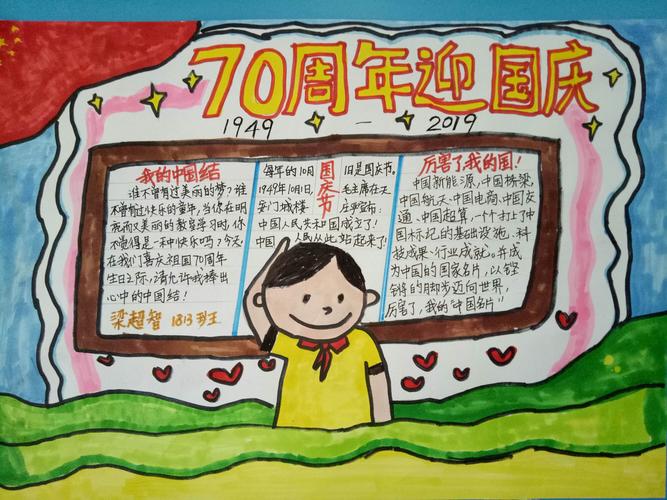 70周年迎国庆
1949 — 2019
我的中国结
谁不曾有过美丽的梦?谁
不曾有过快乐的童年,当你在明
亮而又美丽的教室学习时,你
不觉得是一种快乐吗?今天,
在我们喜庆祖国70周年
生日之际,请允许我捧出
心中的中国结!
梁超智 1813班
国庆节
每年的10月 1日是国庆节。
1949年10月1日, 毛主席在天
安门城楼 庄严宣布:
中国人民共和国成立了!
中国 人民从此站起来了!
厉害了我的国!
中国新能源,中国桥梁,
中国航天、中国电商、中国交
通、中国超算,一个个打上了中
国标记的基础设施、科
技成果、行业成就。并成
为中国的国家名片,以铿
锵的脚步迈向世界,
厉害了,我的"中国名片"